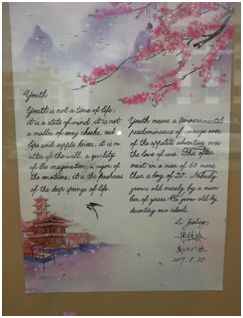 Youth
Youth is not a time of life;
it is a state of mind; it is not
a matter of rosy cheeks, red
lips and supple knees; it is m
atter of the will, a quality
of the imagination, a vigor of
the emotions; it is the freshness
of the deep springs of life.
Youth means a temperamental
predominance of courage over
of the appetite adventure over
the love of ease. This often
exist in a man of 60 more
than a boy of 20. Nobody
grows old merely by a num
ber of years. We grow old by
deserting our ideals.
2017. 9. 20